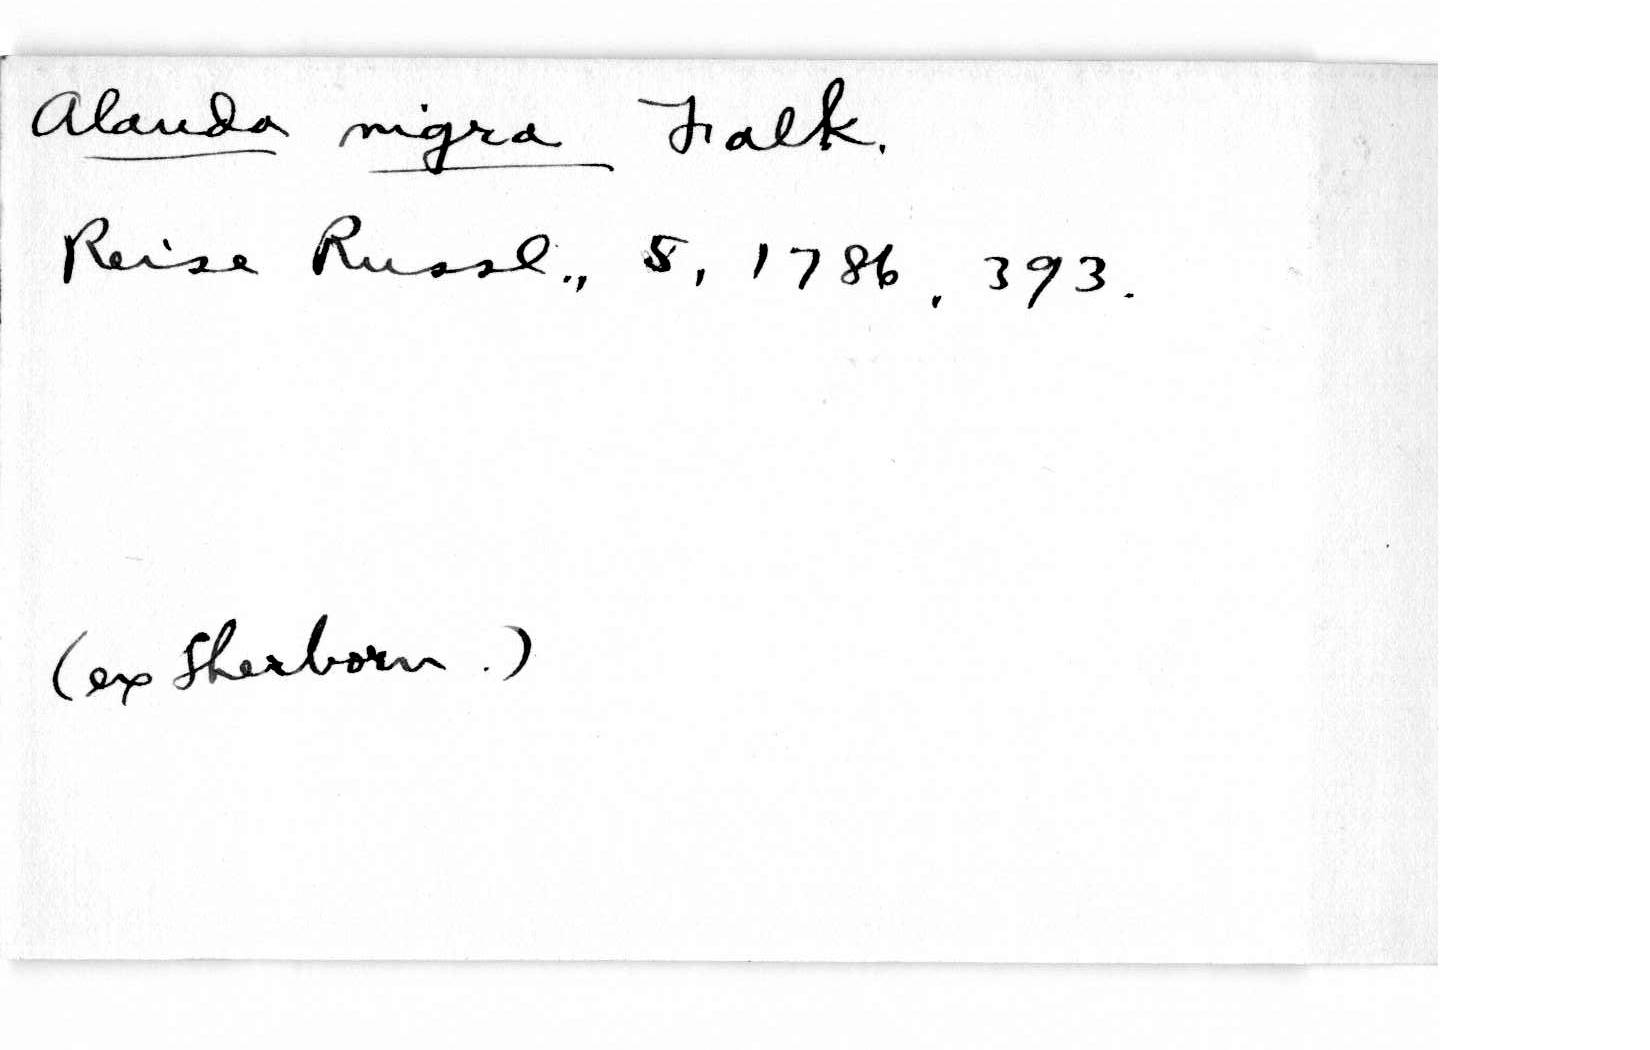 Alauda nigra Falk.
Reise Russl., 5, 1786, 393.
(ex Sherborn.)